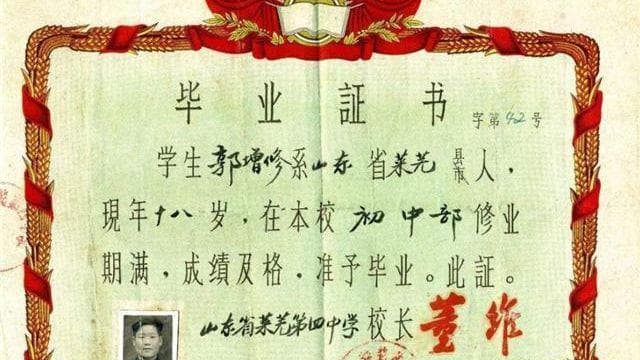 毕业証书
字第402号
学生郭增修系山东省莱芜县市人，
現年十八岁，在本校初中部修业
期满，成绩及格，准予毕业。此証。
山东省莱芜第四中学校长董维